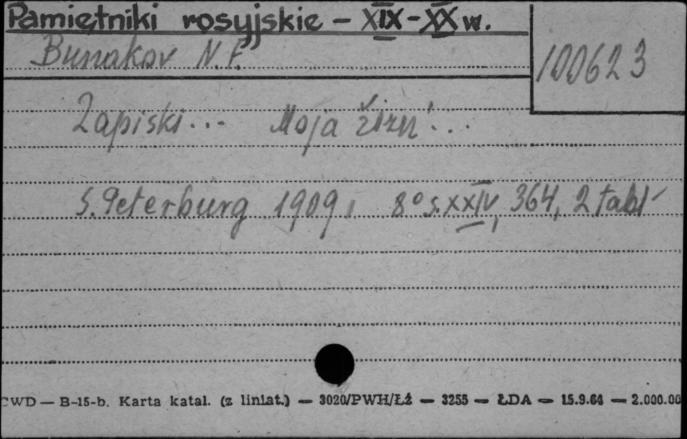 Pamiętniki rosyjskie - XIX-XX w.
Bunakov N. F.
100623
Zapiski... Moja žizn'...
S. Peterburg 1909, 8° s. XXIV, 364, 2 tabl
CWD — B-15-b. Karta katal. (z liniat.) — 3020/PWH/Łź — 3255 — ŁDA — 15.9.64 — 2.000.00